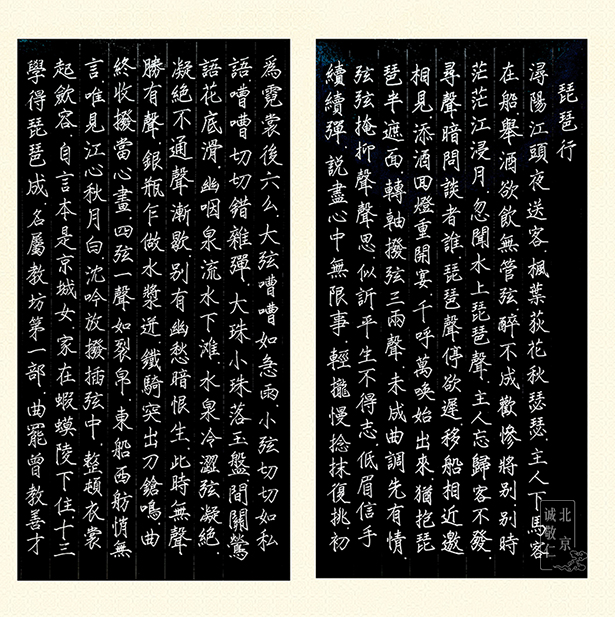 琵琶行
潯陽江頭夜送客.楓葉荻花秋瑟瑟.主人下馬客
在船.舉酒欲飲無管弦.醉不成歡慘將別.別時
茫茫江浸月.忽聞水上琵琶聲.主人忘歸客不發.
尋聲暗問談者誰.琵琶聲停欲遲.移船相近邀
相見.添酒回燈重開宴.千呼萬喚始出來.猶抱琵
琶半遮面.轉軸撥弦三兩聲.未成曲調先有情.
弦弦掩抑聲聲思.似訢平生不得志.低眉信手
續續彈.説盡心中無限事.輕攏慢捻抹復挑.初
為霓裳後六么.大弦嘈嘈如急雨.小弦切切如私
語.嘈嘈切切錯雜彈.大珠小珠落玉盤.間關鶯
語花底滑.幽咽泉流水下灘.水泉冷澀弦凝絕.
凝絕不通聲漸歇.別有幽愁暗恨生.此時無聲
勝有聲.銀瓶乍做水漿迸.鐵騎突出刀鎗鳴.曲
終收撥當心畫.四弦一聲如裂帛.東船西舫悄無
言.唯見江心秋月白.沈吟放撥插弦中.整頓衣裳
起斂容.自言本是京城女.家在蝦蟆陵下住.十三
學得琵琶成.名屬教坊第一部.曲罷曾教善才
北京
誠敬仁